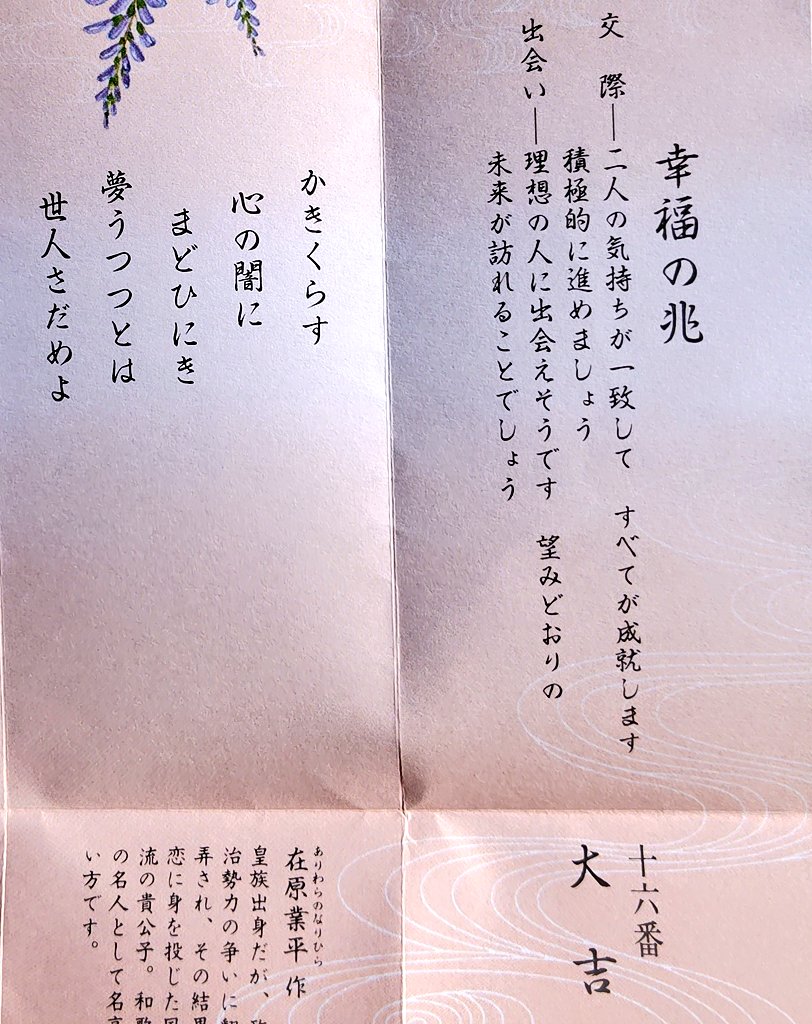 幸福の兆
交　際―二人の気持ちが一致して　すべてが成就します
積極的に進めましょう
出会い―理想の人に出会えそうです　望みどおりの
未来が訪れることでしょう
十六番
大吉
かきくらす
心の闇に
まどひにき
夢うつつとは
世人さだめよ
ありわらのなりひら
在原業平 作
皇族出身だが、
治勢力の争いに
弄され、その結果
恋に身を投じた風
流の貴公子。和歌
の名人として名高
い方です。